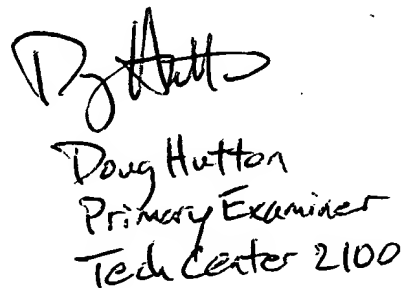 D Hutto
Doug Hutton
Primary Examiner
Tech Center 2100